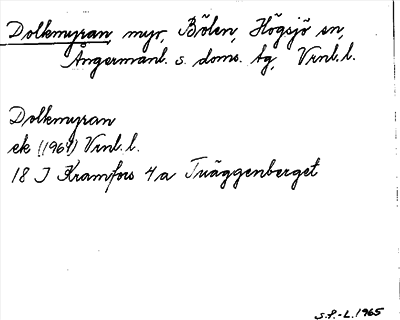 Dolkmyran, myr, Bölen, Högsjö sn,
Ångermanl. s. doms. tg, Vrnl. l.
Dolkmyran
ek (1964) Vrnl. l.
18 J Kramfors 4a Tväggenberget
S.F.-L. 1965